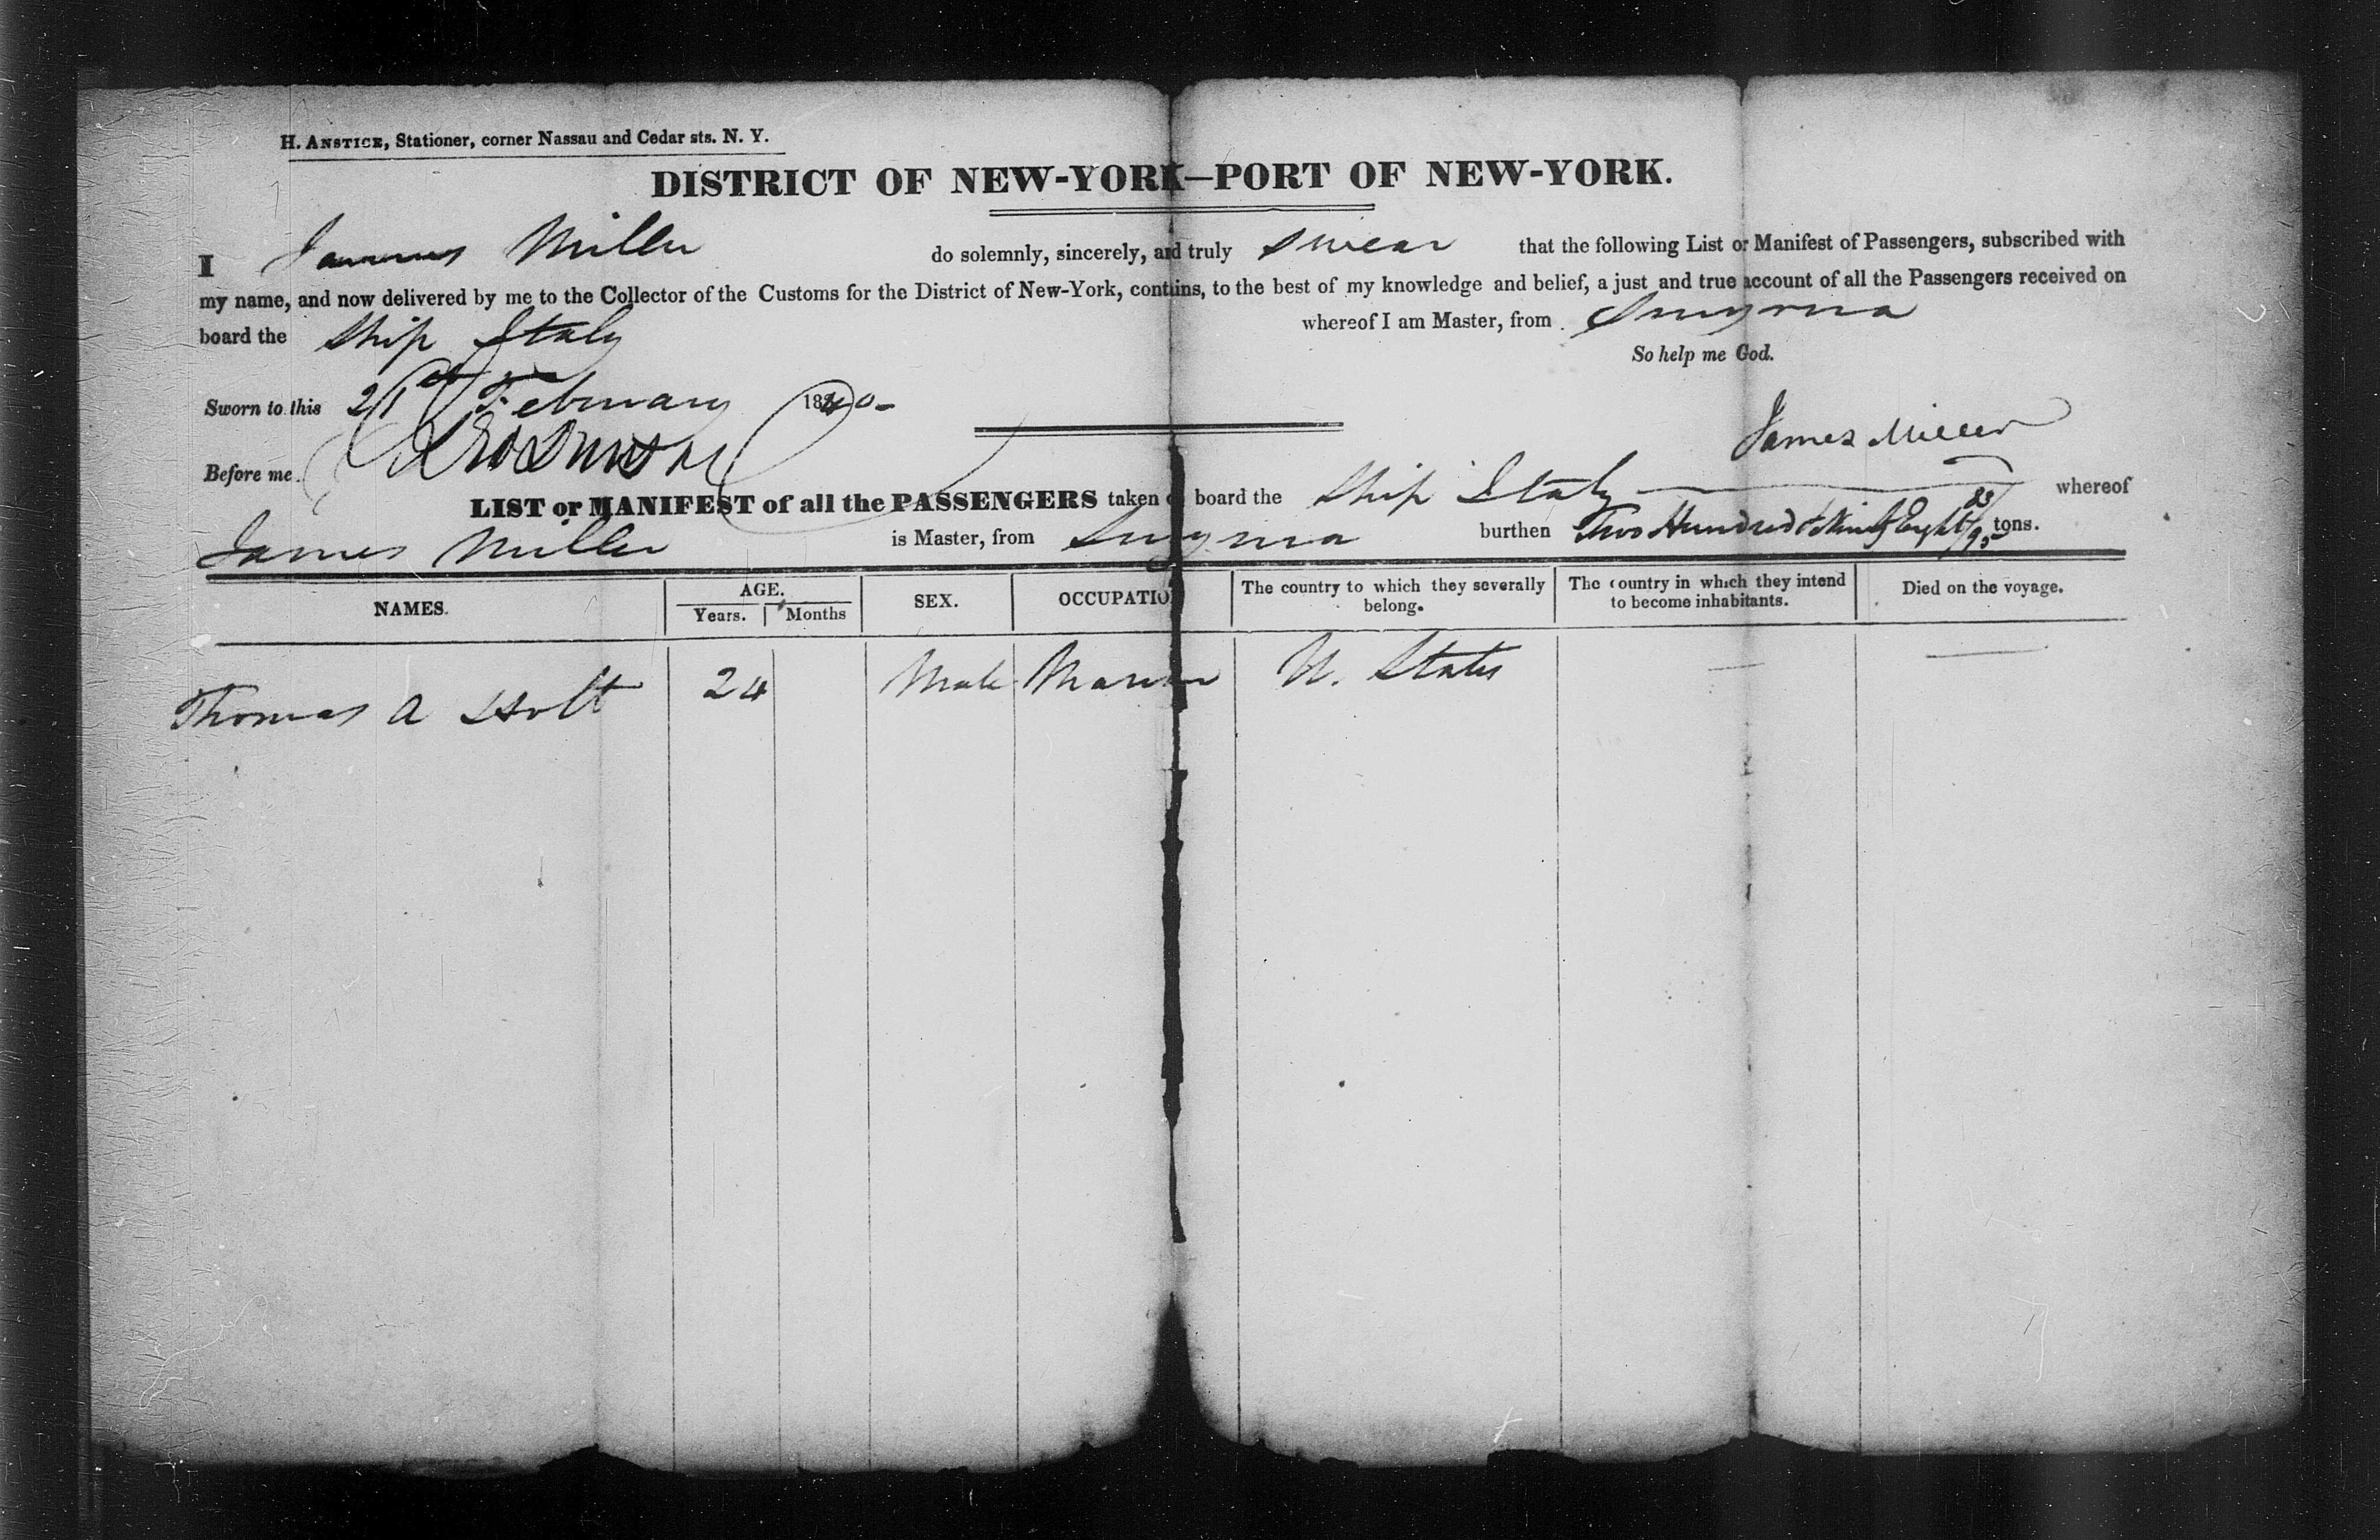 H. ANSTICE, Stationer, corner Nassau and Cedar sts. N. Y.
DISTRICT OF NEW-YORK—PORT OF NEW-YORK.
I James Miller do solemnly, sincerely, and truly swear that the following List or Manifest of Passengers, subscribed with
my name, and now delivered by me to the Collector of the Customs for the District of New-York, contains, to the best of my knowledge and belief, a just and true account of all the Passengers received on
board the Ship Italy whereof I am Master, from Smyrna
So help me God.
Sworn to this 21st February 1840-
James Miller
Before me
LIST or MANIFEST of all the PASSENGERS taken on board the Ship Italy whereof
James Miller is Master, from Smyrna burthen Two Hundred & Ninty Eight 83/95 tons.
NAMES. AGE. Years. Months SEX. OCCUPATION The country to which they severally belong. The country in which they intend to become inhabitants. Died on the voyage.
Thomas A Holt 24 Male Mariner U. States — —